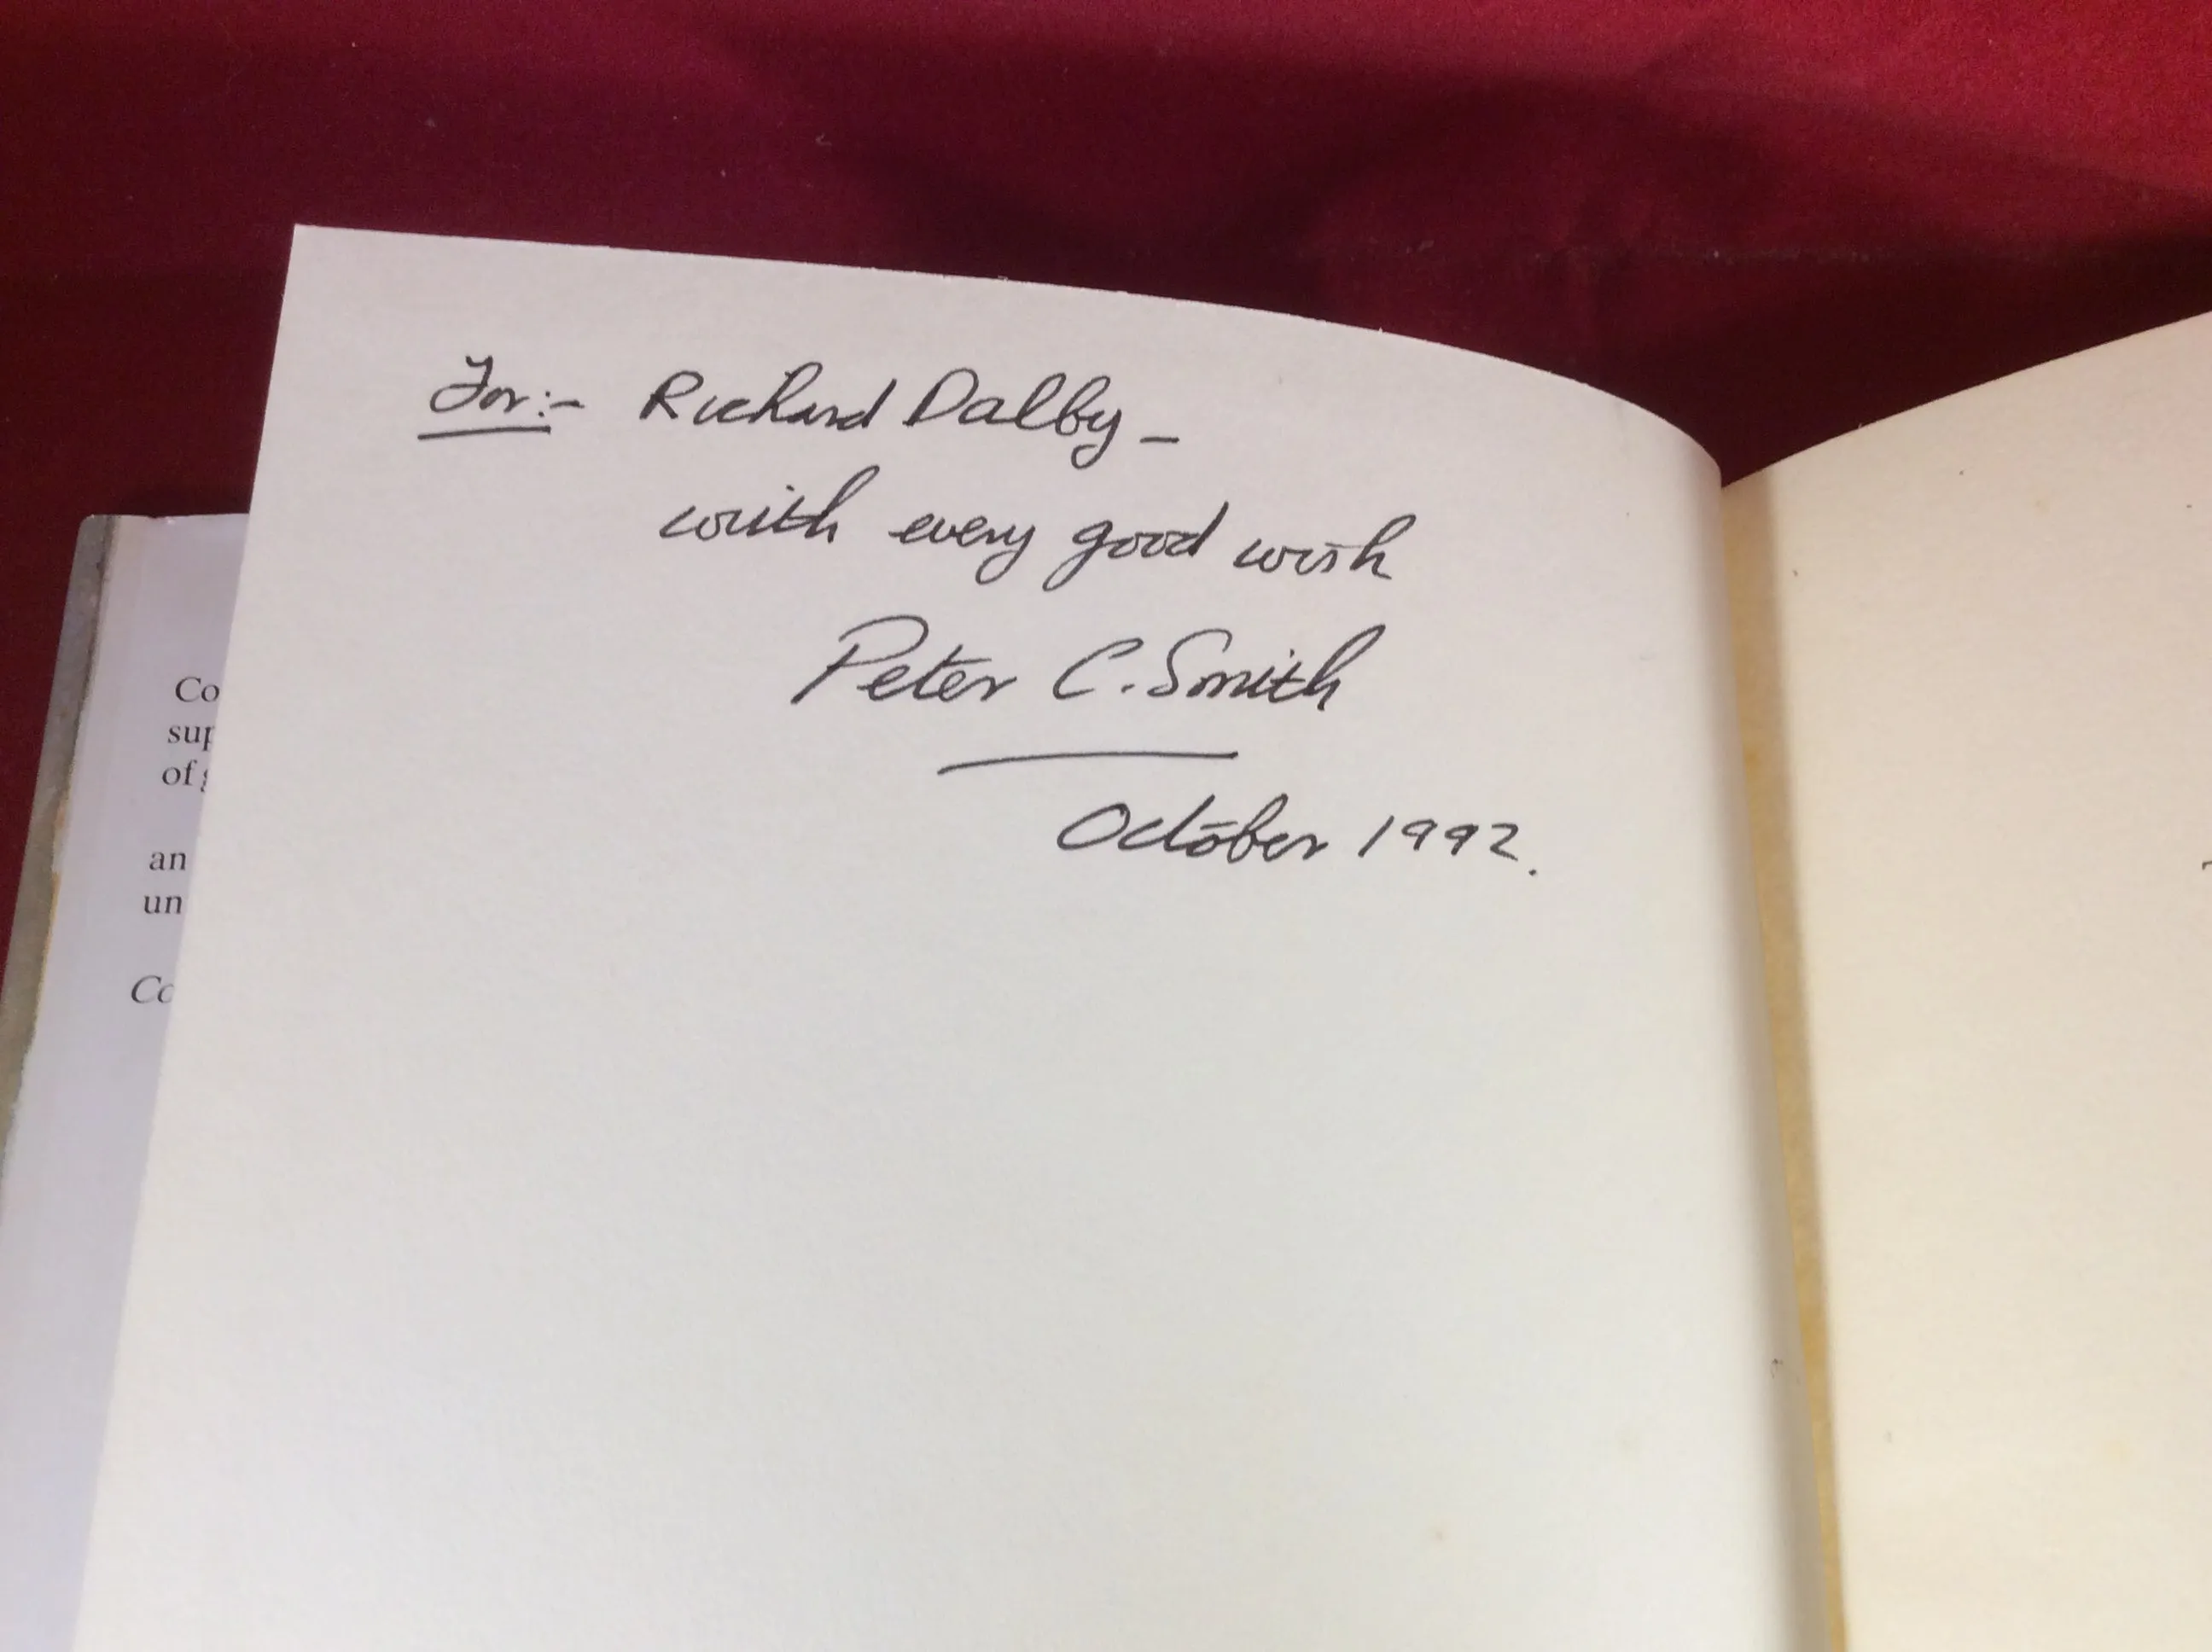 For:- Richard Dalby -
with every good wish
Peter C. Smith
October 1992.
Co
sup
of
an
un
Co